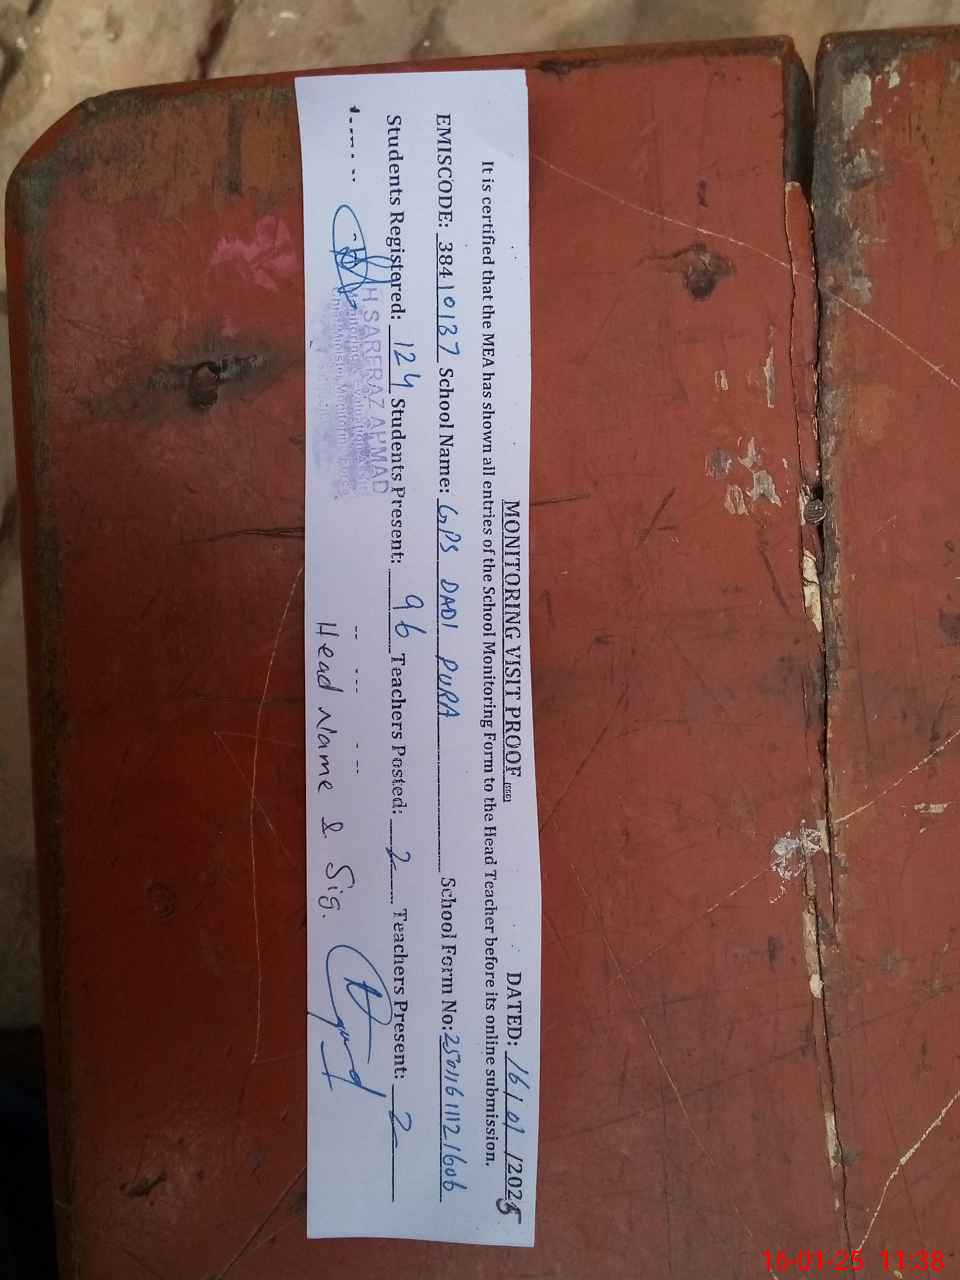 MONITORING VISIT PROOF DATED: 16/01/2025
It is certified that the MEA has shown all entries of the School Monitoring Form to the Head Teacher before its online submission.
EMISCODE: 38410137 School Name: GPS DADI PURA School Form No: 25011611121606
Students Registered: 124 Students Present: 96 Teachers Posted: 2 Teachers Present: 2
H SARFRAZ AHMAD
Head Name & Sig.
16-01-25 11:38